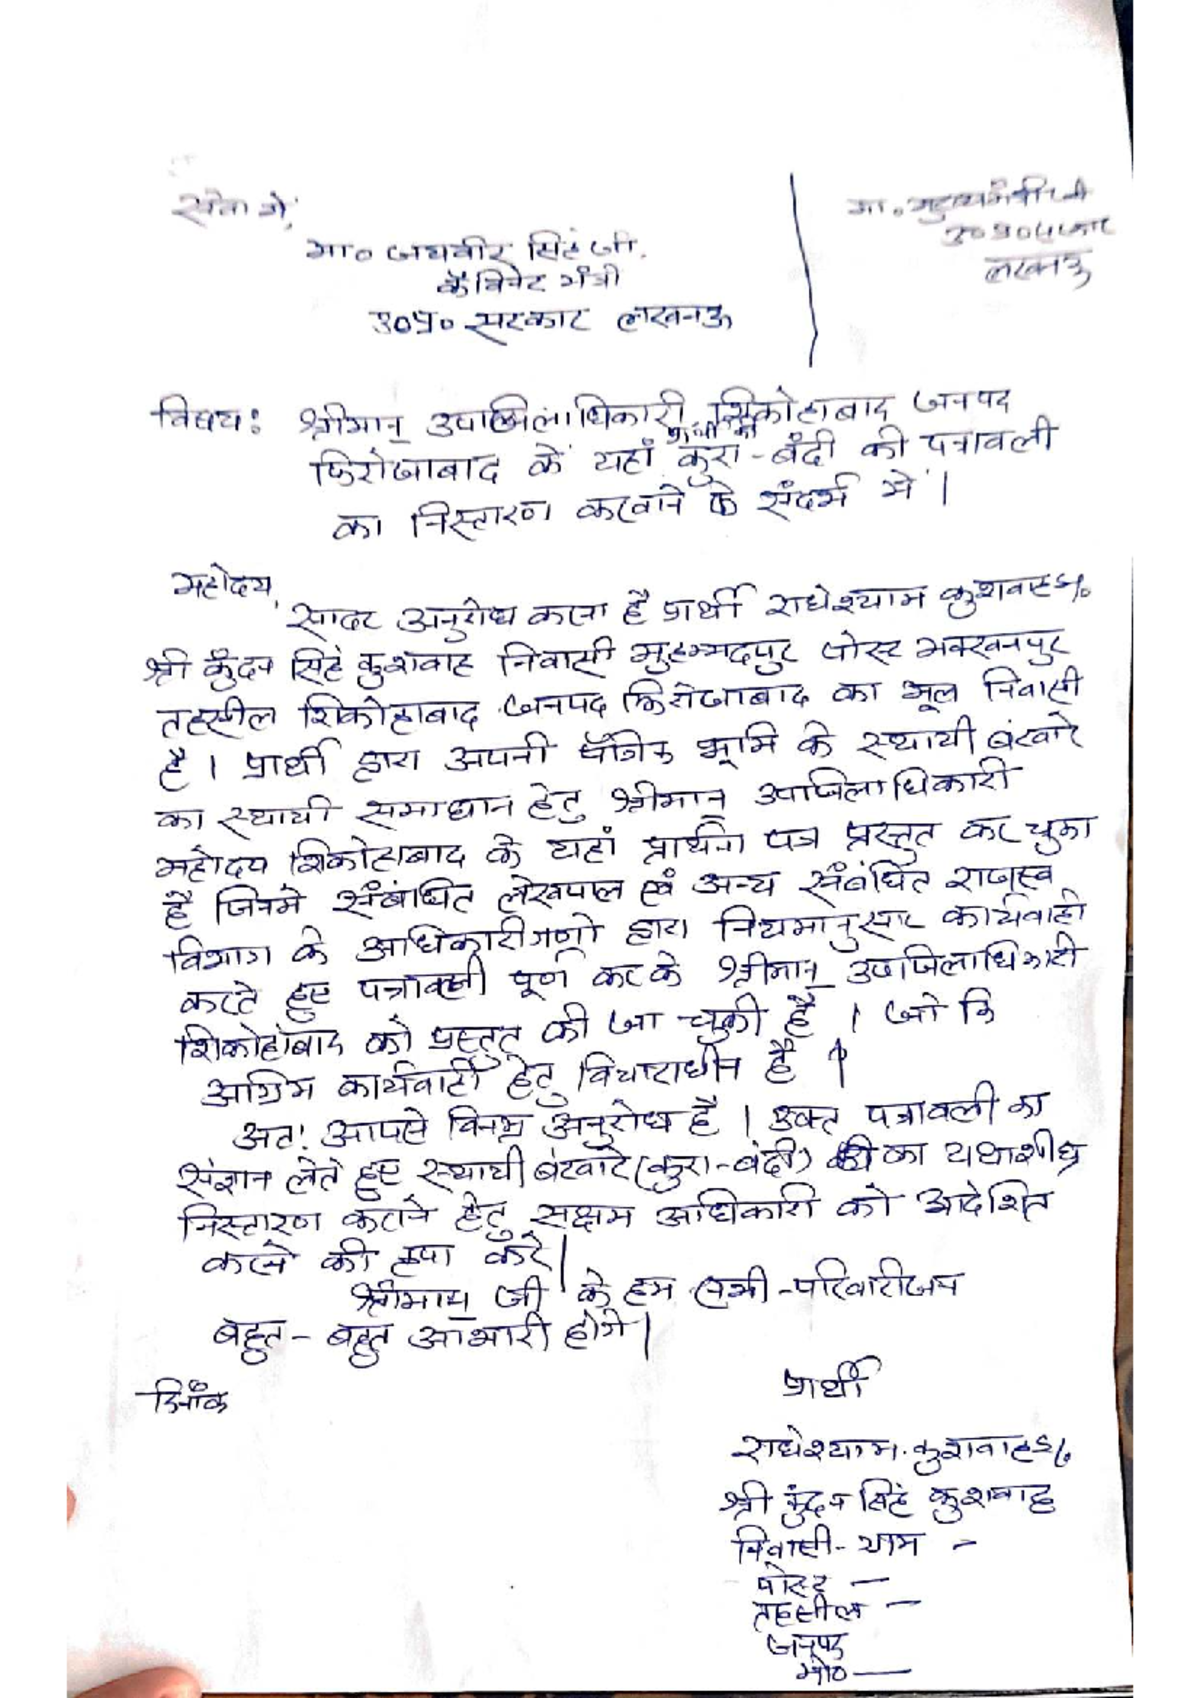 सेवा में,
मा० जयवीर सिंह जी.
कैबिनेट मंत्री
उ०प्र० सरकार लखनऊ
मा० मुख्यमंत्री जी
उ०प्र० सरकार
लखनऊ
विषय: श्रीमान् उपजिलाधिकारी शिकोहाबाद जनपद
फिरोजाबाद के यहां प्रार्थी की कुरा-बंदी की पत्रावली
का निस्तारण करवाने के संदर्भ में।
महोदय,
सादर अनुरोध करना है प्रार्थी राधेश्याम कुशवाह S/o
श्री कुंदन सिंह कुशवाह निवासी मुहम्मदपुर पोस्ट मक्खनपुर
तहसील शिकोहाबाद जनपद फिरोजाबाद का मूल निवासी
है। प्रार्थी द्वारा अपनी पैत्रिक भूमि के स्थायी बंटवारे
का स्थायी समाधान हेतु श्रीमान् उपजिलाधिकारी
महोदय शिकोहाबाद के यहां प्रार्थना पत्र प्रस्तुत कर चुका
है जिसमे संबंधित लेखपाल एवं अन्य संबंधित राजस्व
विभाग के अधिकारीगणो द्वारा नियमानुसार कार्यवाही
करते हुए पत्रावली पूर्ण करके श्रीमान् उपजिलाधिकारी
शिकोहाबाद को प्रस्तुत की जा चुकी है । जो कि
अग्रिम कार्यवाही हेतु विचाराधीन है ।
अतः आपसे विनम्र अनुरोध है । उक्त पत्रावली का
संज्ञान लेते हुए स्थायी बंटवारे (कुरा-बंदी) का यथाशीघ्र
निस्तारण कराने हेतु सक्षम अधिकारी को आदेशित
करने की कृपा करें।
श्रीमान् जी के हम सभी - परिवारीजन
बहुत - बहुत आभारी होगे।
दिनाँक
प्रार्थी
राधेश्याम कुशवाह S/o
श्री कुंदन सिंह कुशवाह
निवासी - ग्राम -
पोस्ट -
तहसील -
जनपद
मो० -